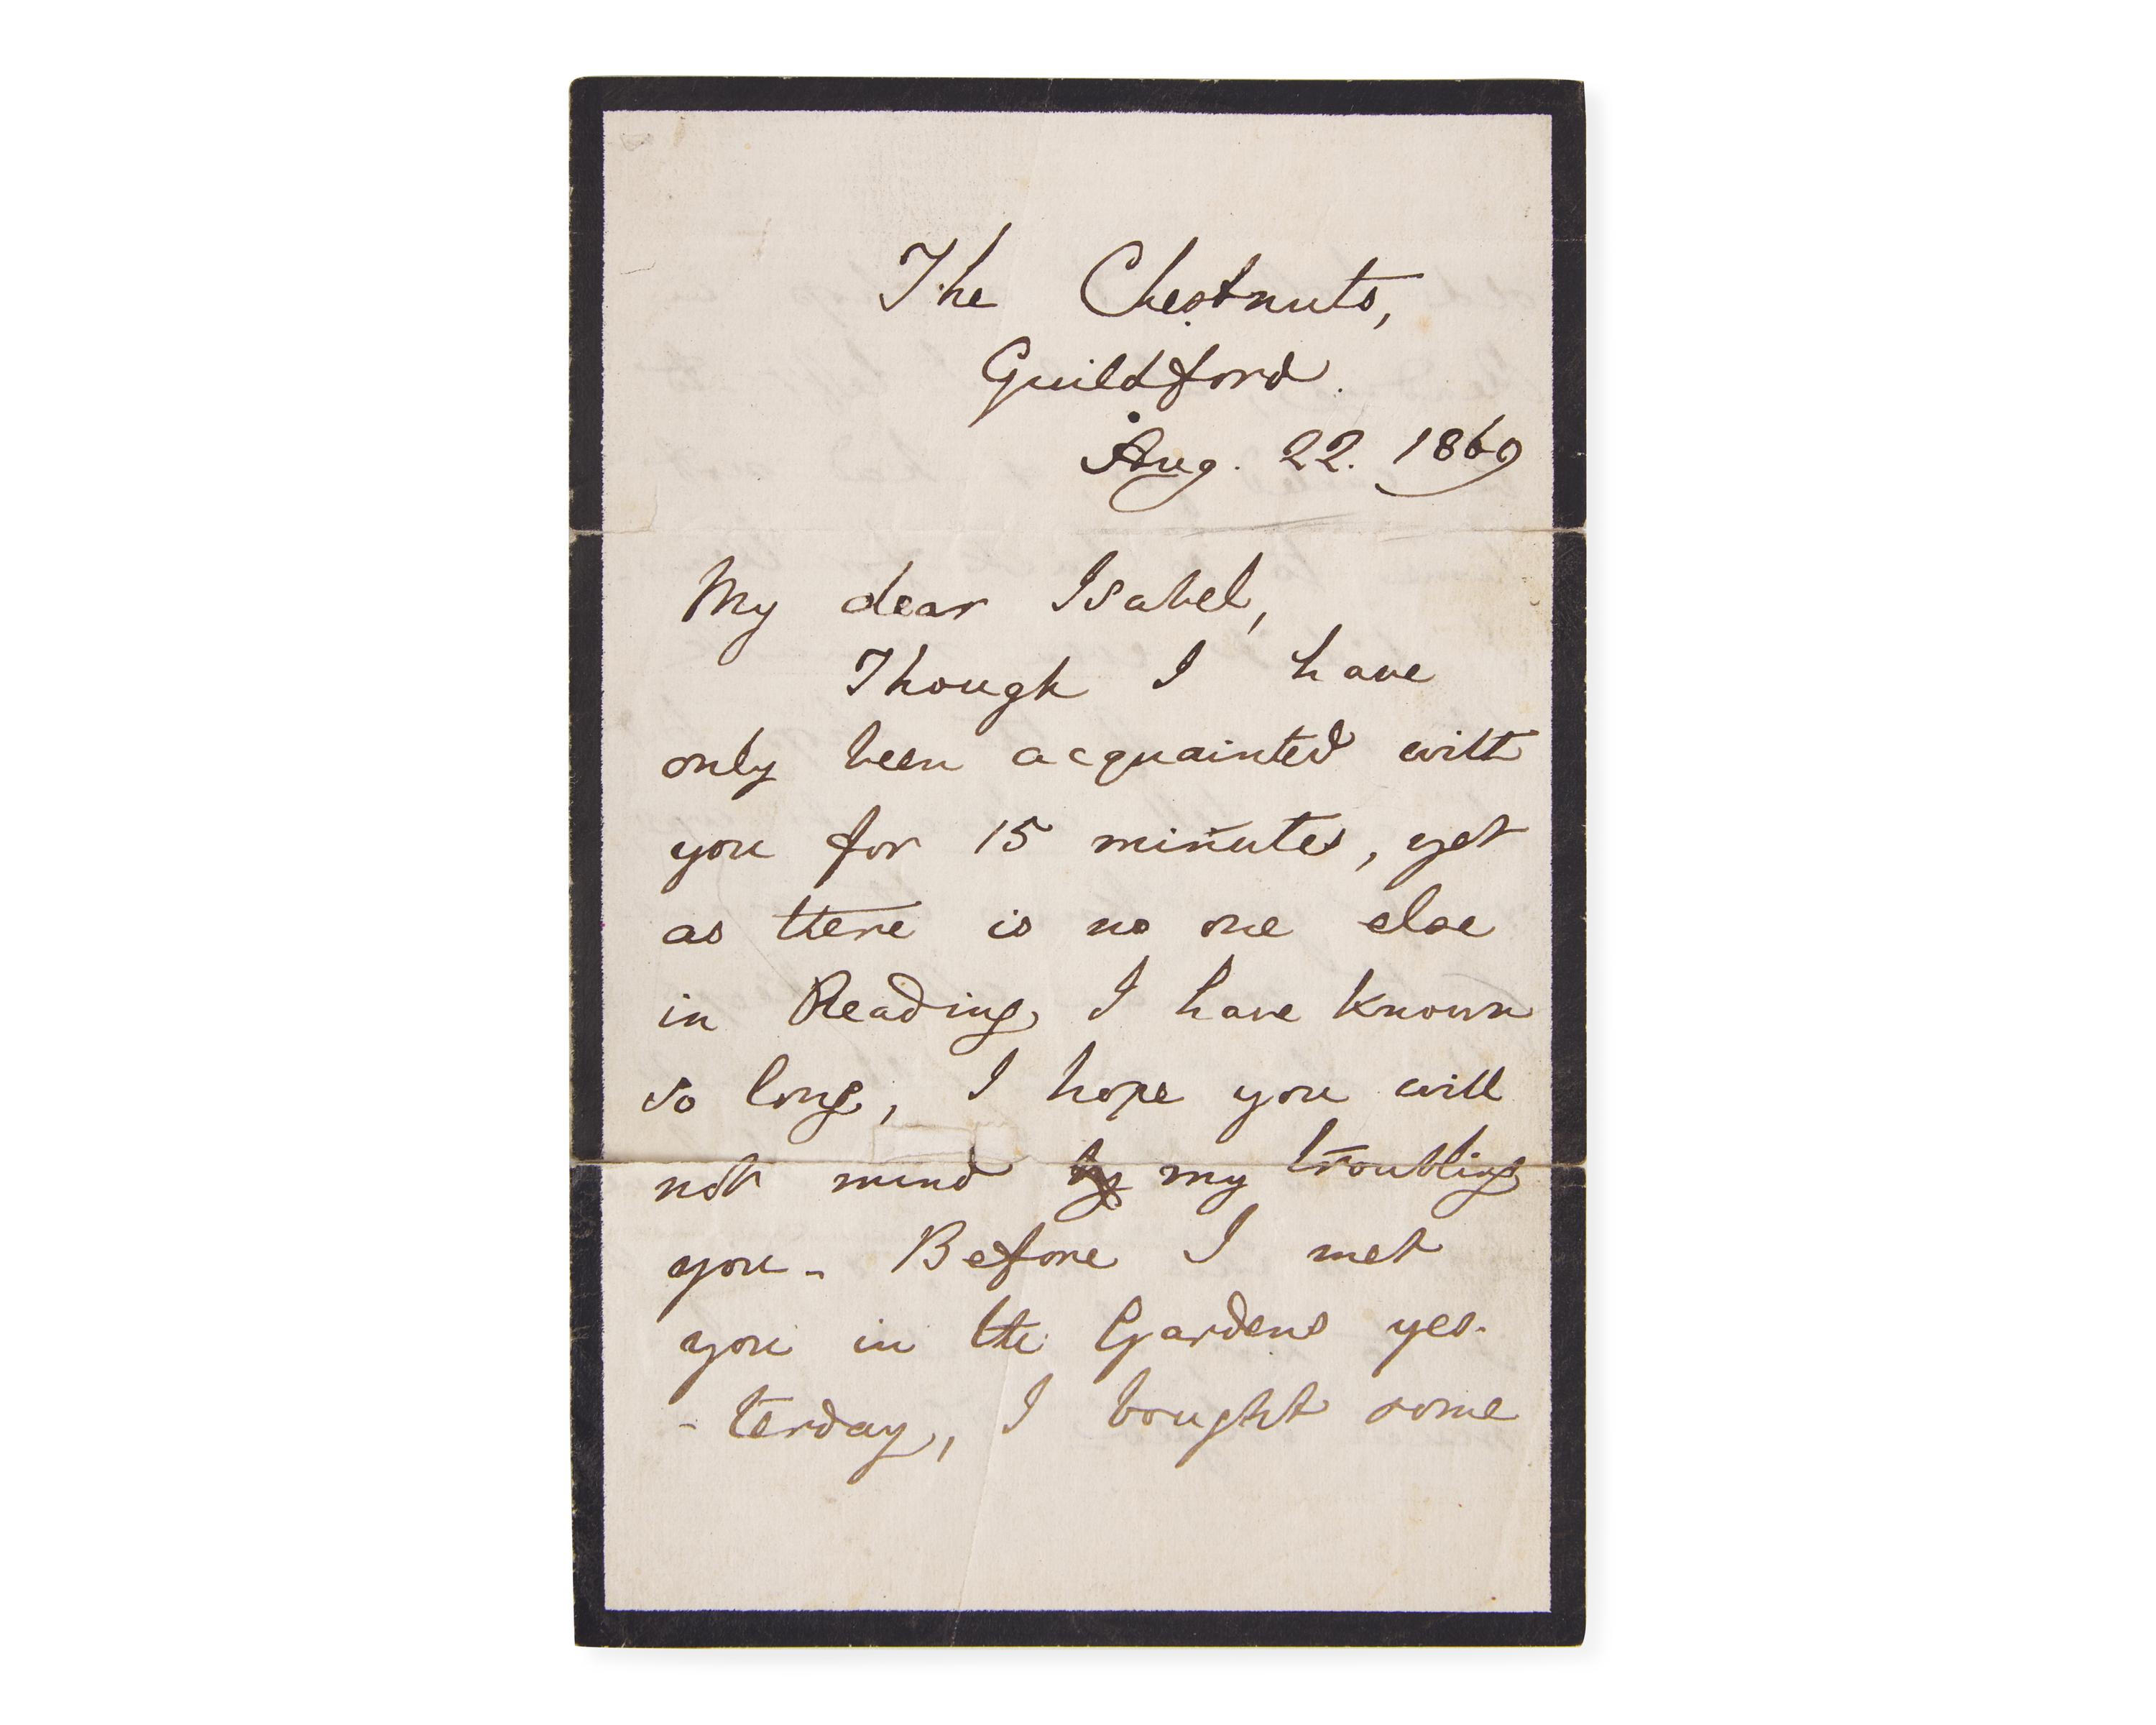 The Chestnuts,
Guildford.
Aug. 22. 1869
My dear Isabel,
Though I have
only been acquainted with
you for 15 minutes, yet
as there is no one else
in Reading I have known
so long, I hope you will
not mind my troubling
you. Before I met
you in the Gardens yes-
-terday, I bought some